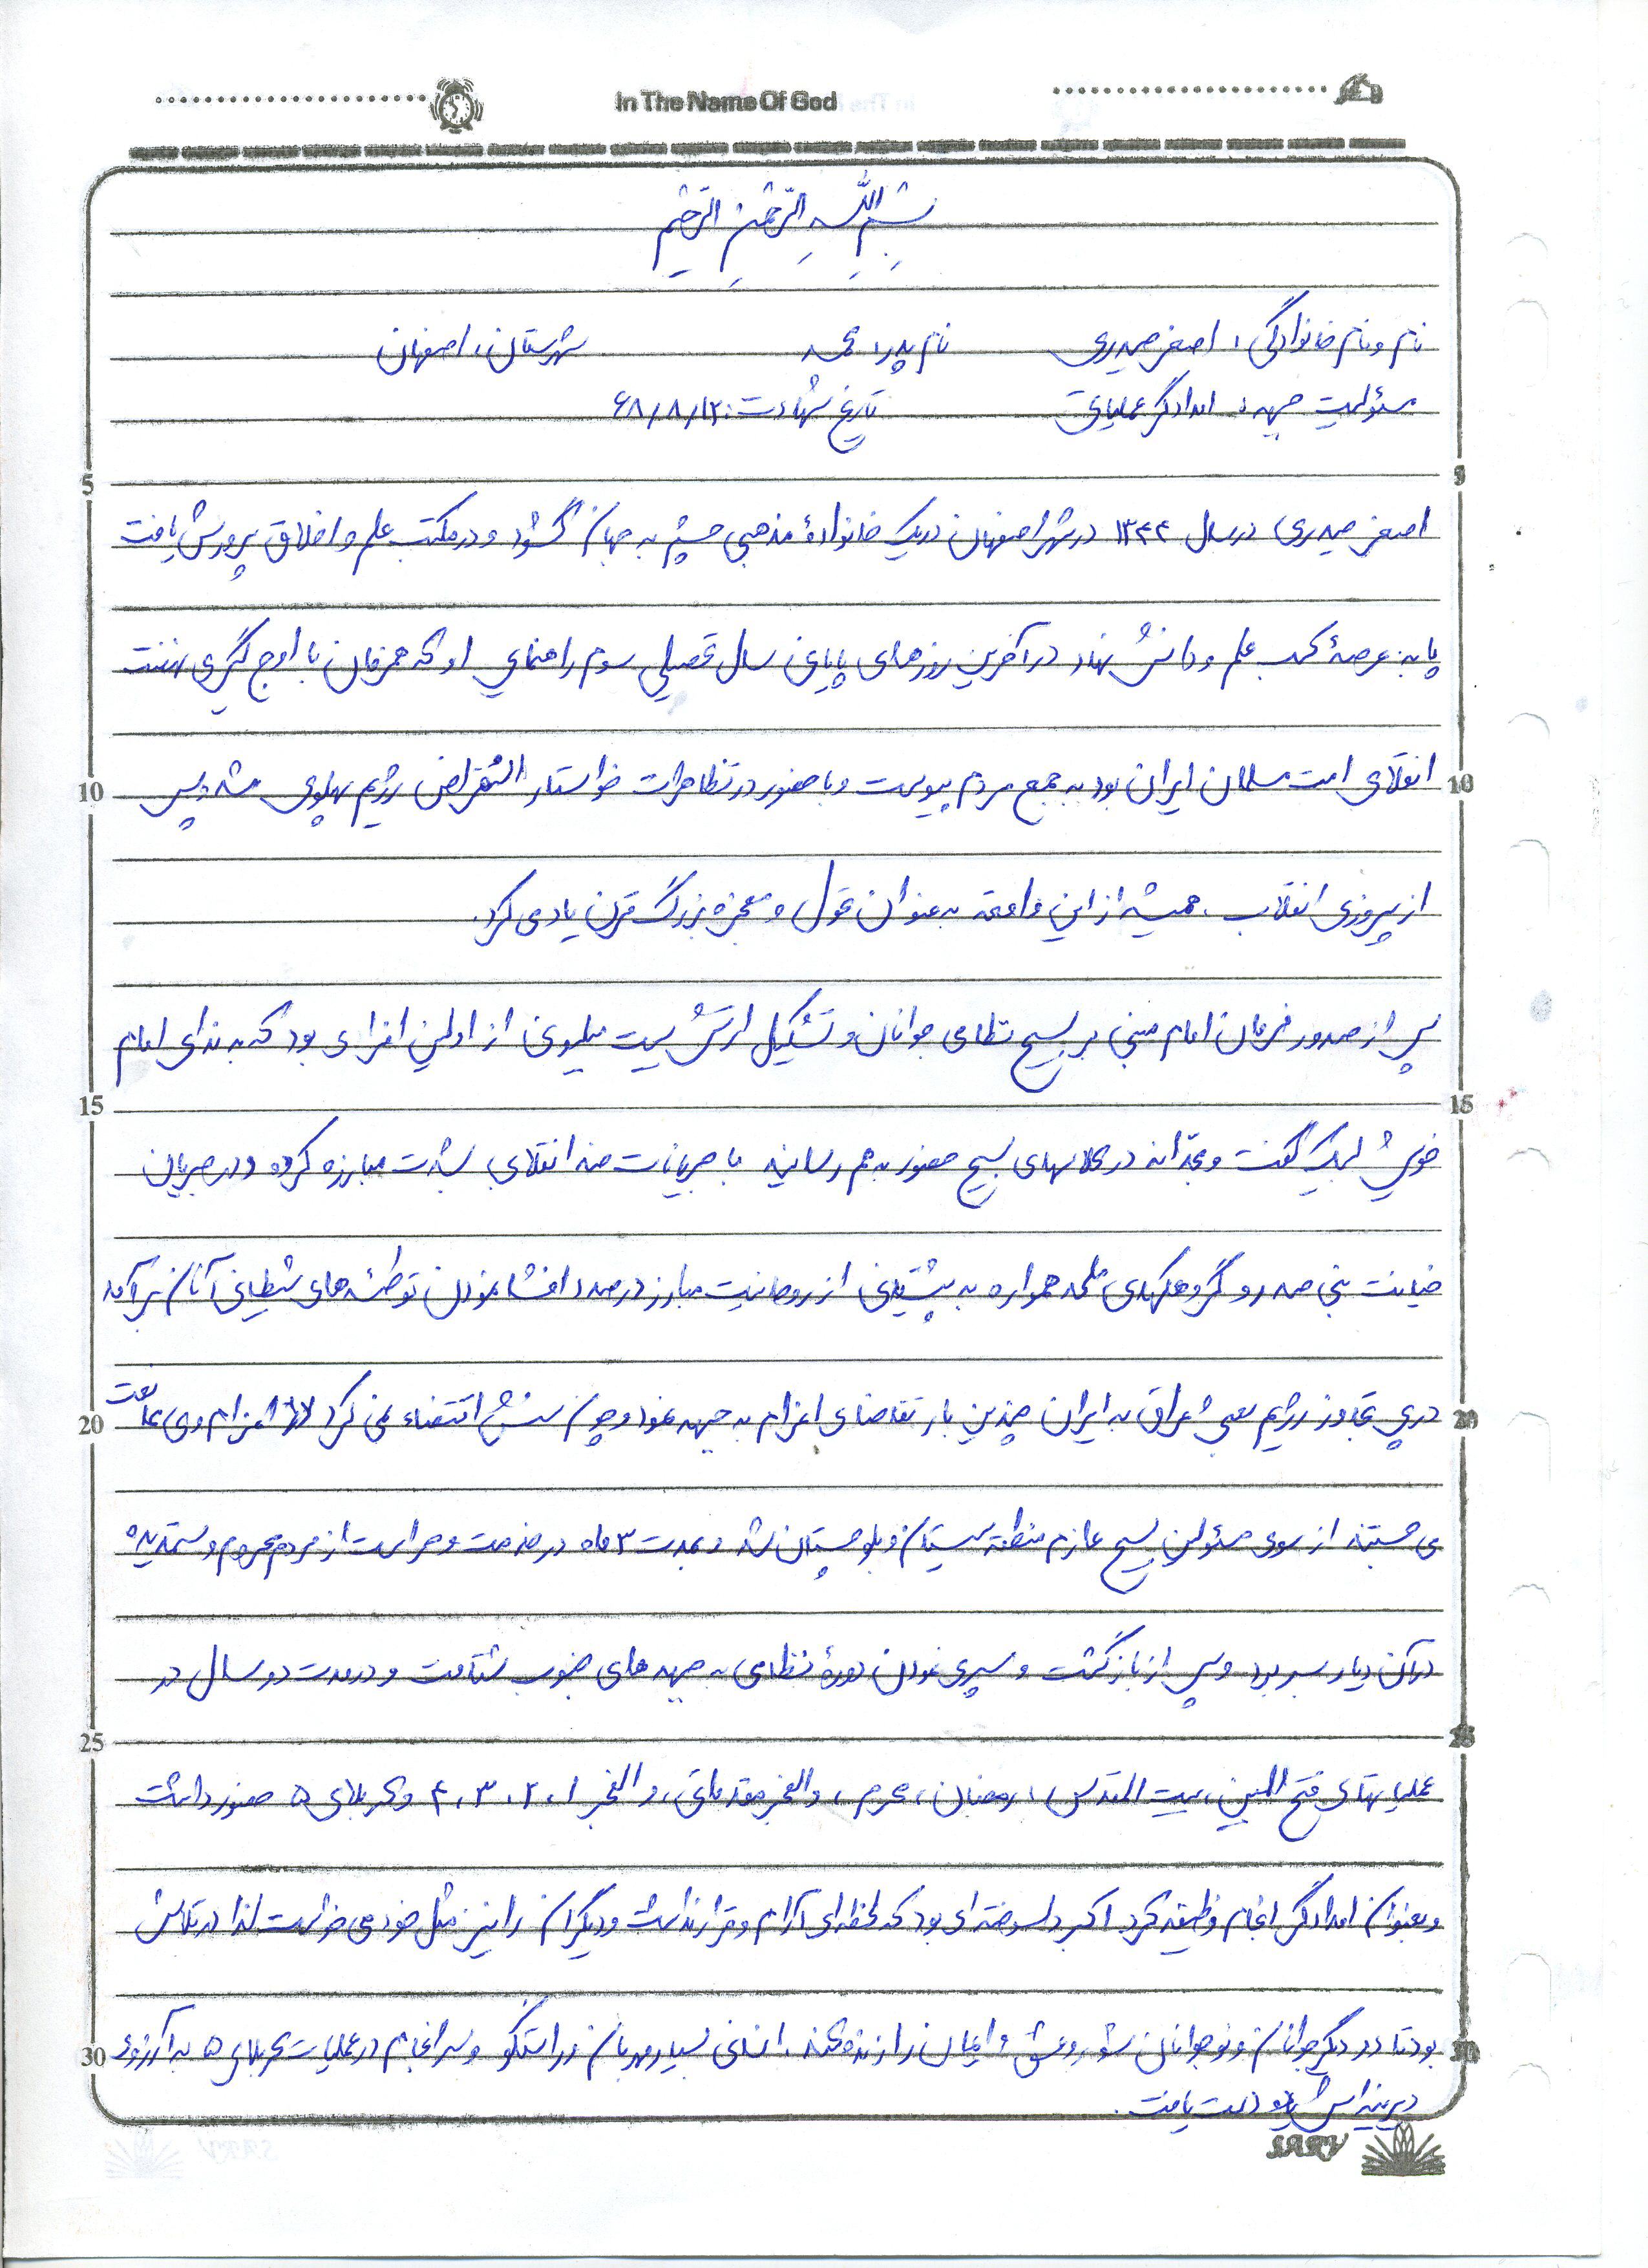 In The Name Of God
بِسْمِ اللهِ الرَّحْمنِ الرَّحیم
نام و نام خانوادگی: اصغر حیدری نام پدر: شهرستان: اصفهان
مسئولیت جبهه: امدادگر عملیاتی تاریخ شهادت: ۶۸/۸/۱۲
5
اصغر حیدری در سال ۱۳۴۴ در شهر اصفهان در یک خانوادهٔ مذهبی چشم به جهان گشود و در مکتب علم و اخلاق پرورش یافت
پا به عرصهٔ کسب علم و دانش نهاد در آخرین روزهای پایانی سال تحصیلی سوم راهنمایی او که همزمان با اوج گیری نهضت
10 انقلابی امت مسلمان ایران بود به جمع مردم پیوست و با حضور در تظاهرات خواستار انقراض رژیم پهلوی شد و پس 10
از پیروزی انقلاب، همیشه از این واقعه به عنوان تحول و معجزه بزرگ قرن یاد می کرد.
پس از صدور فرمان امام مبنی بر بسیج نظامی جوانان و تشکیل ارتش بیست میلیونی از اولین افرادی بود که به ندای امام
15 15
خویش لبیک گفت و مجدّانه در کلاسهای بسیج حضور به هم رسانید با جریانات ضد انقلابی بشدت مبارزه کرده و در جریان
خیانت بنی صدر و گروهکهای ملحد همواره به پشتیبانی از روحانیت مبارز درصدد افشا نمودن توطئه های شیطانی آنان برآمد
20 در پی تجاوز رژیم بعثی عراق به ایران چندین بار تقاضای اعزام به جبهه نمود و چون سنش اقتضاء نمی کرد لذا از اعزام وی ممانعت 20
می جستند از سوی مسئولین بسیج عازم منطقه سیستان و بلوچستان شد و بمدت ۳ ماه در خدمت و حراست از مردم محروم و ستمدیده
در آن دیار بسر برد و پس از بازگشت و سپری نمودن دورهٔ نظامی به جبهه های جنوب شتافت و در مدت دو سال در
25 25
عملیاتهای فتح المبین، بیت المقدس، رمضان، محرم، والفجر مقدماتی، والفجر ۱، ۲، ۳، ۴ و کربلای ۵ حضور داشت
و بعنوان امدادگر انجام وظیفه کرد دلسوخته ای بود که لحظه ای آرام و قرار نداشت و دیگران را نیز مثل خود می خواست لذا در تلاش
30 بود تا در دیگر جوانان و نوجوانان شور و عشق و ایمان را زنده کند. انسانی بسیار مهربان و راستگو و سرانجام در عملیات کربلای ۵ به آرزوی 30
دیرینه اش دست یافت.
SARV